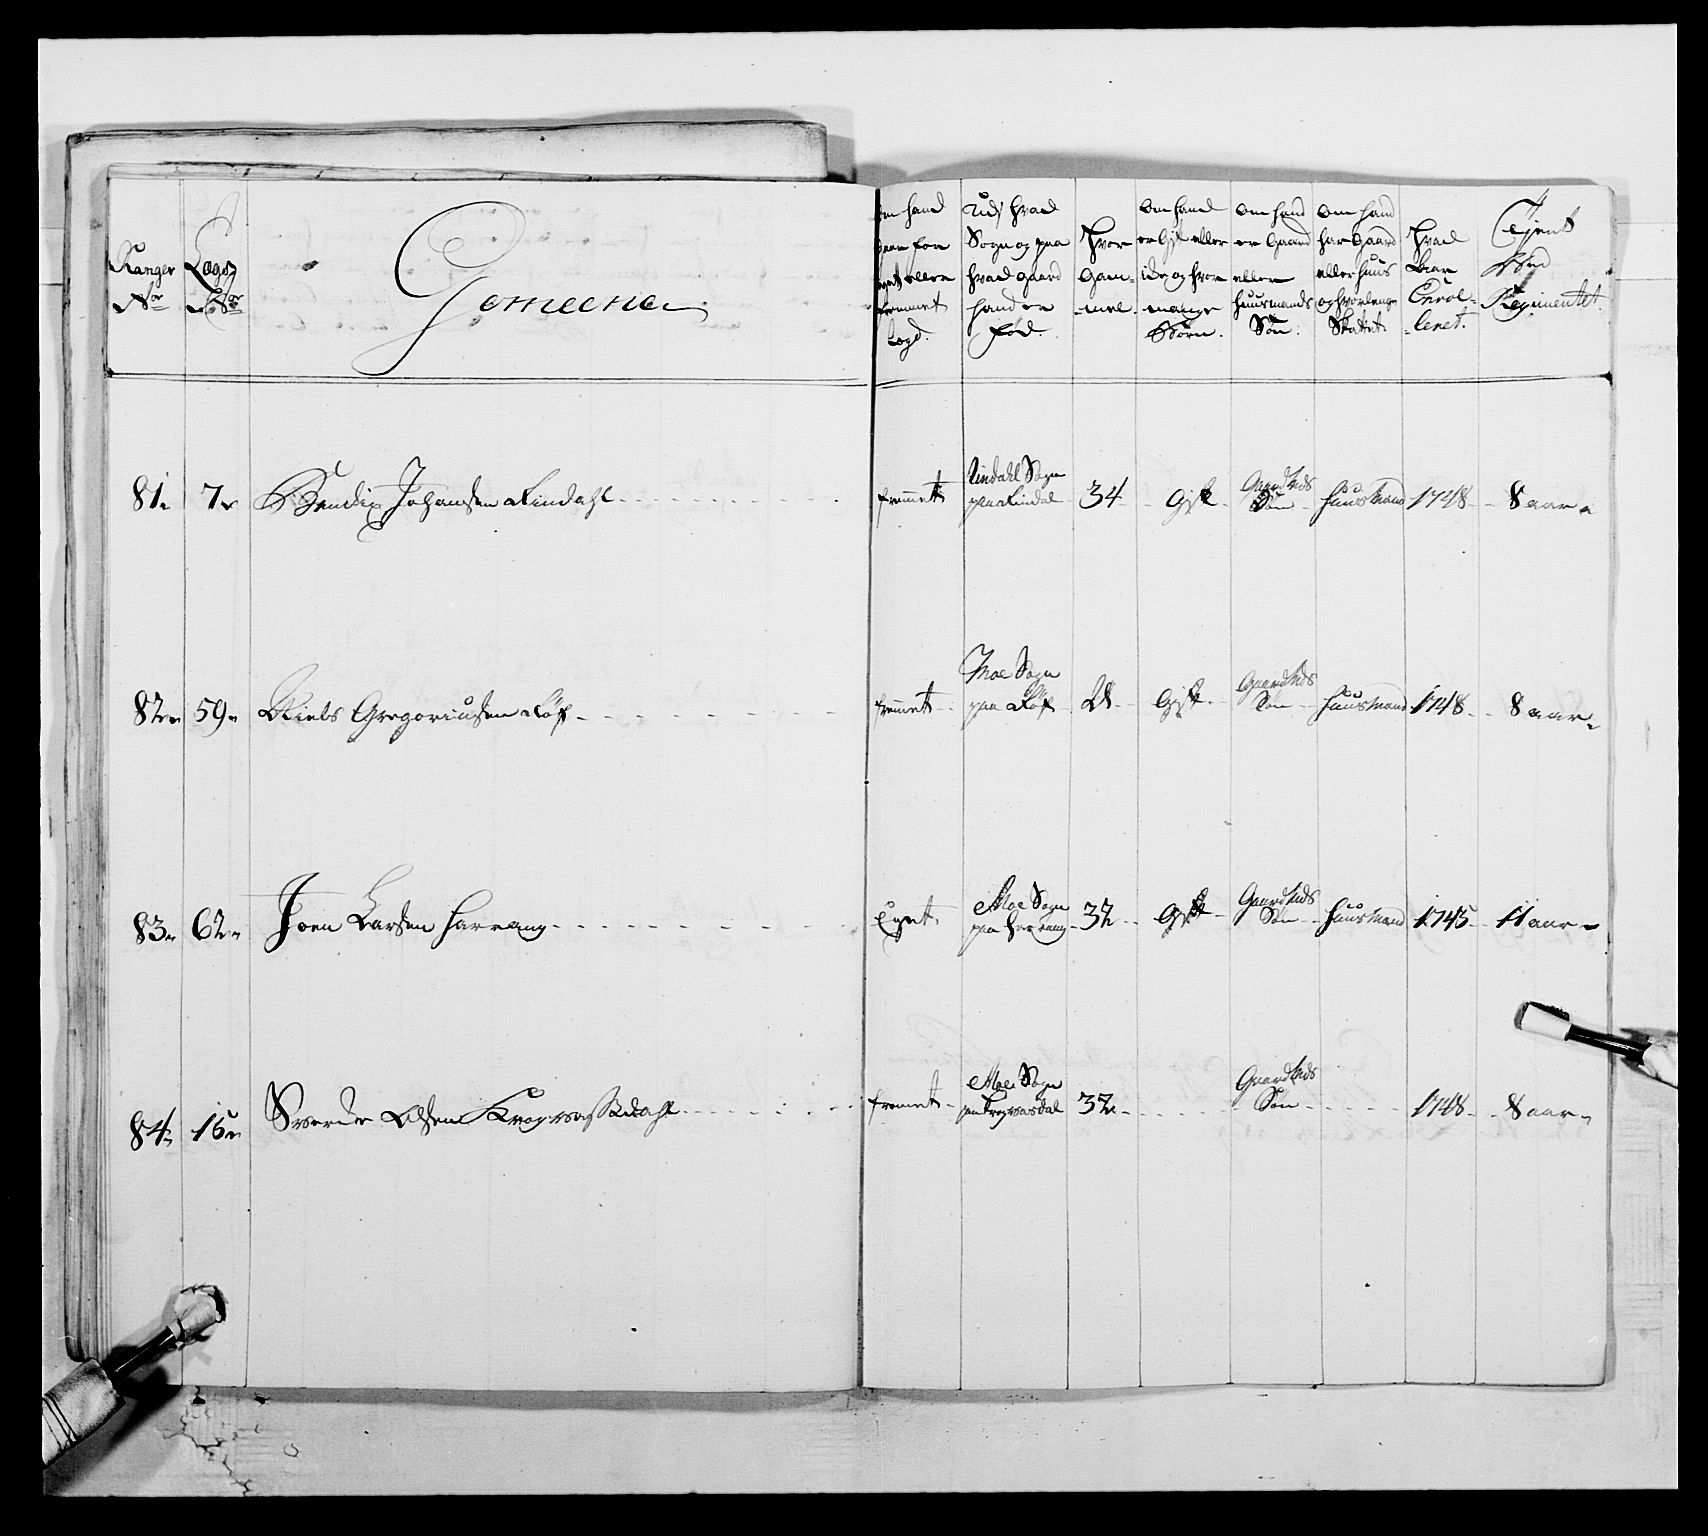 Ranger Nor
Lægs No:
Gemeene
Om hand staar for Eget eller fremmet Lægd.
Udj hvad Sogn og paa hvad gaard hand er fød.
Hvor Gam-mel
Om hand er Gift eller ike og hvor mange Børn.
Om hand er Gaard eller Huusmands Søn.
Om hand har Gaard eller Huus og hvorlenge Skattet
Hvad Aar Enrol-leret.
Tjent Ved Regimentet.
81. 7. Bendix Johansen Rindahl fremmet Rindahl Sogn paa Rindal 34 Gift Gaardmds Søn Huusmand 1748 8 aar
82. 59. Niels Gregoriussen fremmet Moe Sogn paa Gift Gaardmds Søn Huusmand 1748 8 aar
83. 62. Joen Larsen Harrang Eget Moe Sogn paa Harrang 32 Gift Gaardmds Søn Huusmand 1745 11 aar
84. 15. Olsen fremmet Moe Sogn 32 Gaardmds Søn 1748 8 aar